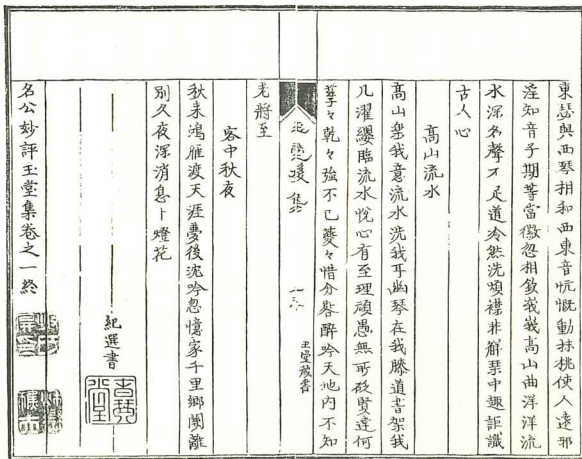 東瑟與西琴相和西東音忼慨動林桃使人遠邪
淫知音子期等當徽忽相欽峩峩高山曲洋洋流
水深名聲不足道冷然洗煩襟非解琴中趣詎識
古人心
高山流水
高山樂我意流水洗我耳幽琴在我膝道書架我
几濯纓臨流水悅心有至理頑愚無所砭賢達何
孳々乾々強不已夔々惜分晷醉吟天地內不知
老將至
客中秋夜
秋來鴻雁渡天涯夢後沈吟忽憶家千里鄉關離
別久夜深消息卜燈花
名公妙評玉堂集卷之一終
紀選書
玉堂藏書